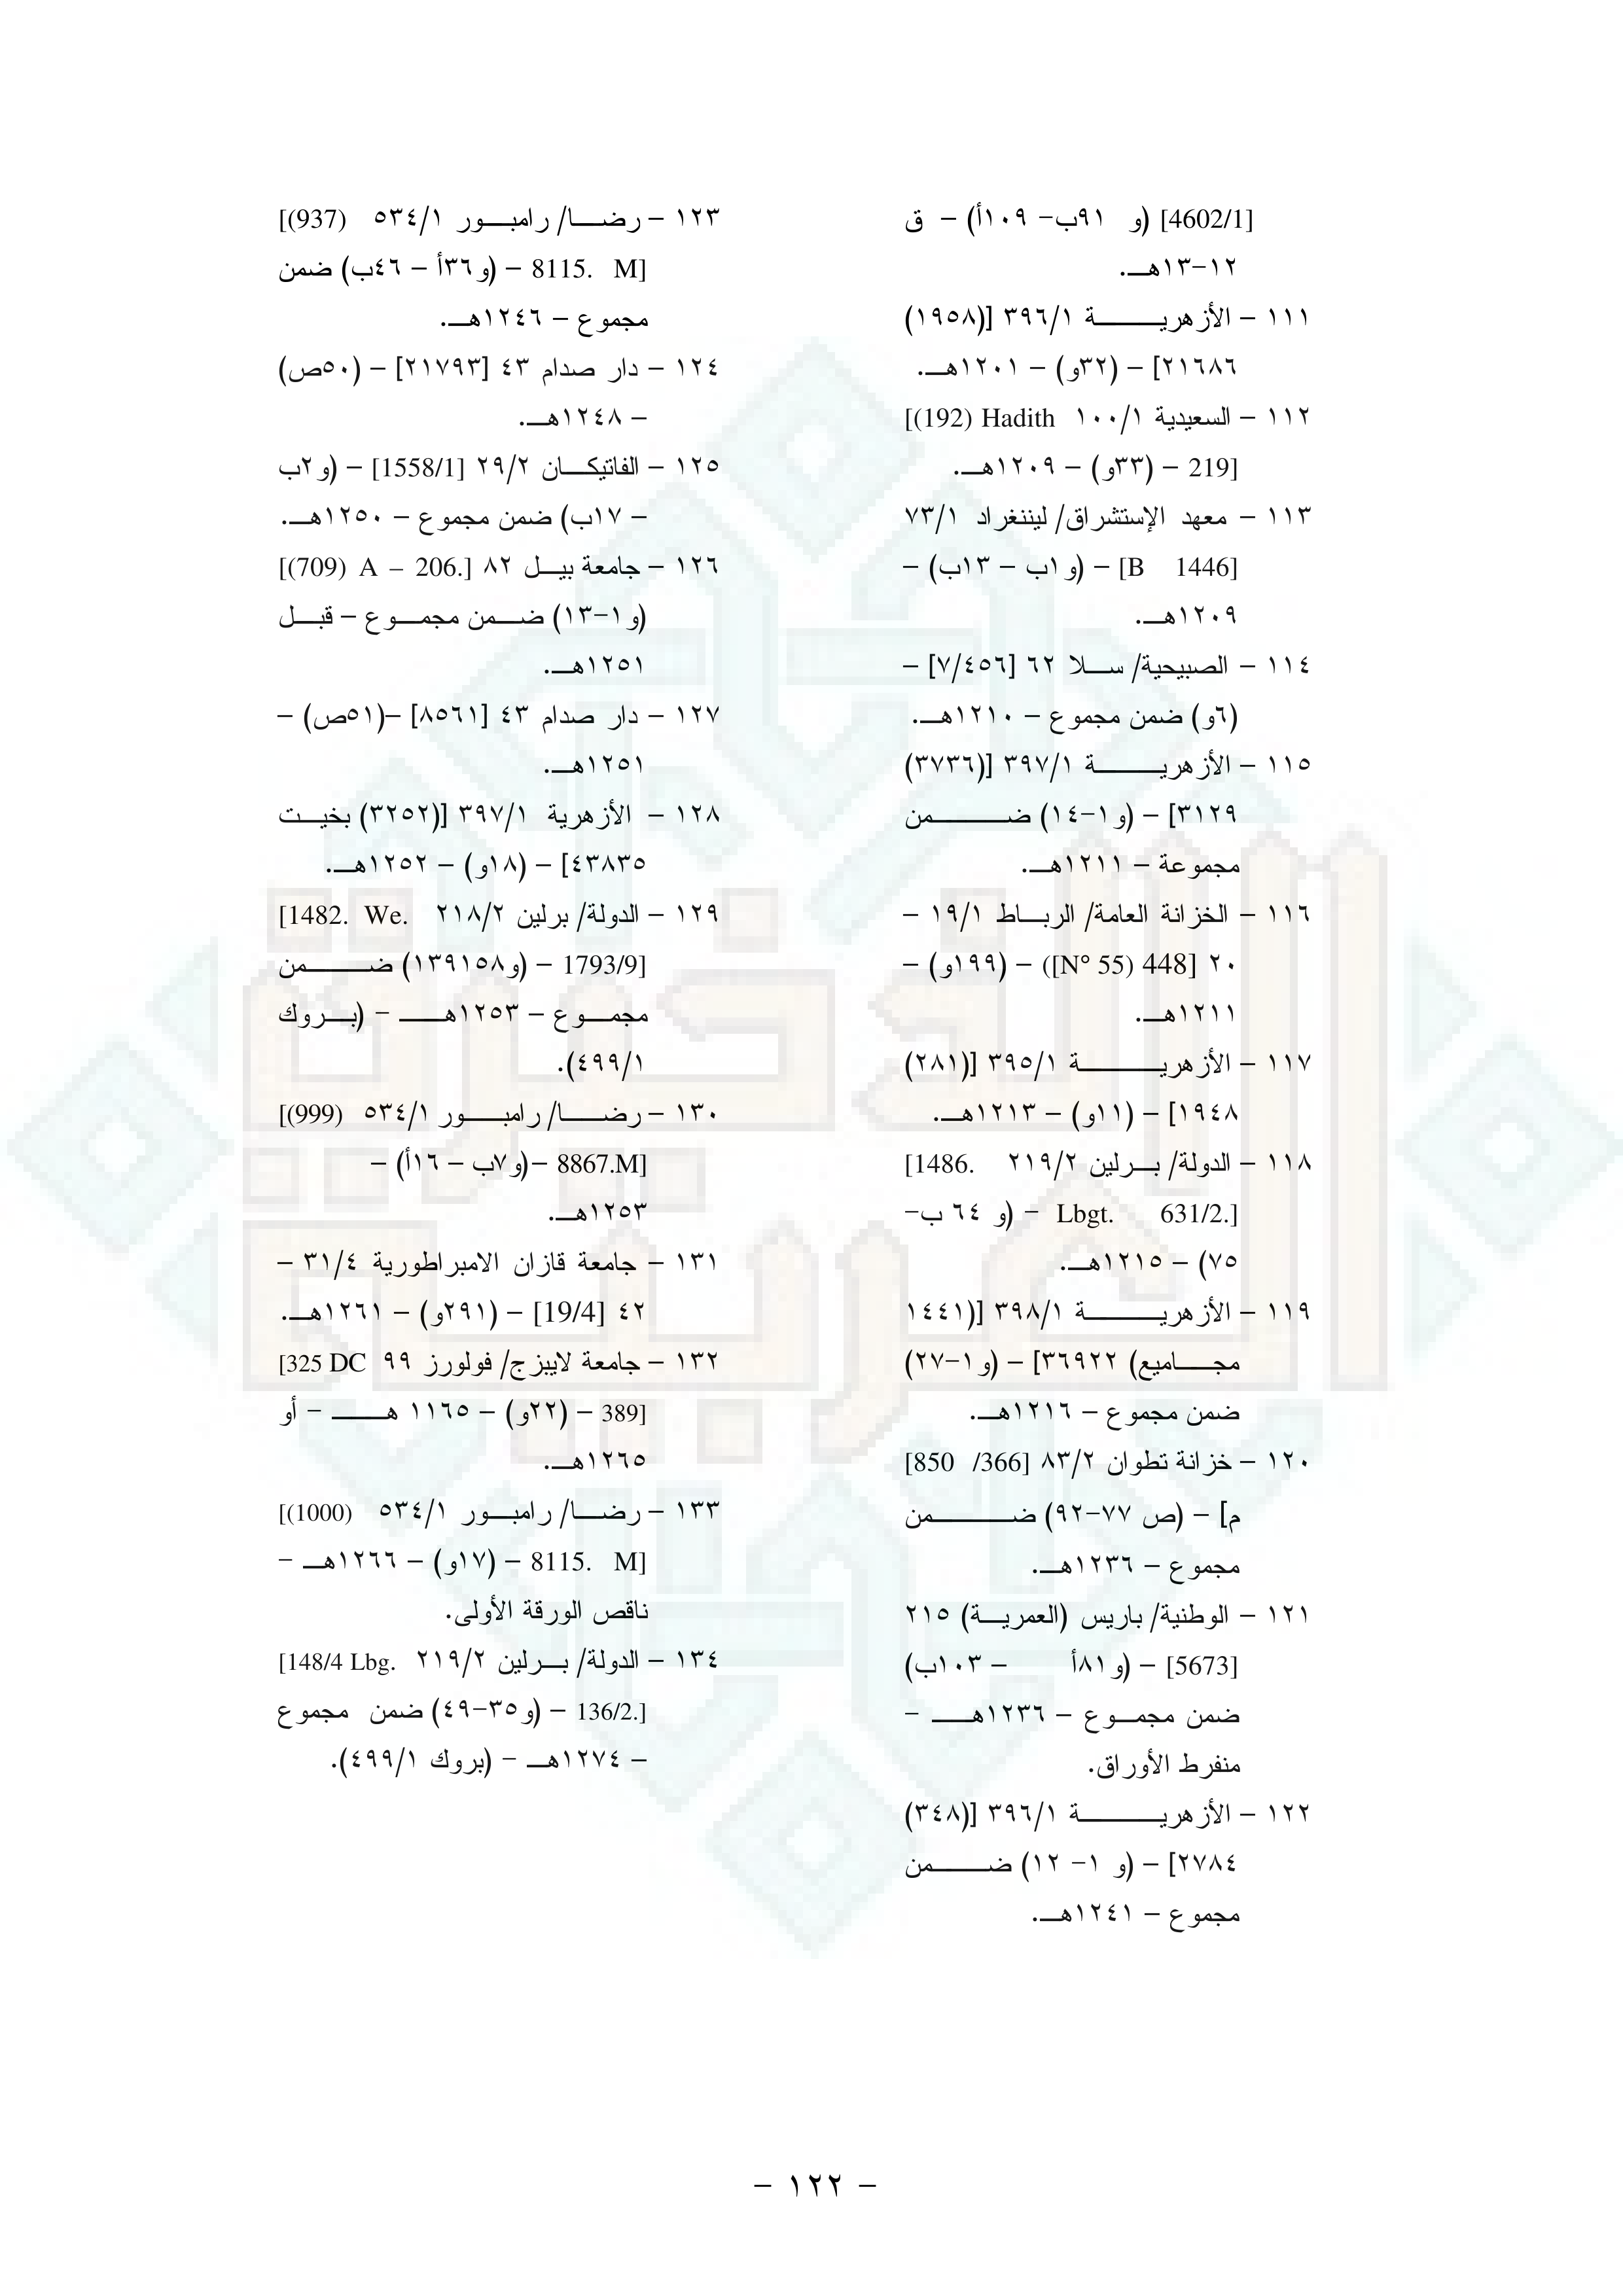 [4602/1] (و ٩١ب- ١٠٩أ) – ق
١٢-١٣هـ.
١١١ – الأزهرية ٣٩٦/١ [(١٩٥٨)
٢١٦٨٦] – (٣٢و) – ١٢٠١هـ.
١١٢ – السعيدية ١٠٠/١ [(192) Hadith
219] – (٣٣و) – ١٢٠٩هـ.
١١٣ – معهد الإستشراق/ ليننغراد ٧٣/١
[B 1446] – (و١ب – ١٣ب) –
١٢٠٩هـ.
١١٤ – الصبيحية/ سلا ٦٢ [٧/٤٥٦] –
(٦و) ضمن مجموع – ١٢١٠هـ.
١١٥ – الأزهرية ٣٩٧/١ [(٣٧٣٦)
٣١٢٩] – (و١-١٤) ضمن
مجموعة – ١٢١١هـ.
١١٦ – الخزانة العامة/ الرباط ١٩/١ –
٢٠ [448 (N° 55)] – (١٩٩و) –
١٢١١هـ.
١١٧ – الأزهرية ٣٩٥/١ [(٢٨١)
١٩٤٨] – (١١و) – ١٢١٣هـ.
١١٨ – الدولة/ برلين ٢١٩/٢ [1486.
Lbgt. 631/2.] – (و ٦٤ ب-
٧٥) – ١٢١٥هـ.
١١٩ – الأزهرية ٣٩٨/١ [(١٤٤١
مجاميع) ٣٦٩٢٢] – (و١-٢٧)
ضمن مجموع – ١٢١٦هـ.
١٢٠ – خزانة تطوان ٨٣/٢ [850 /366
م] – (ص ٧٧-٩٢) ضمن
مجموع – ١٢٣٦هـ.
١٢١ – الوطنية/ باريس (العمرية) ٢١٥
[5673] – (و٨١أ – ١٠٣ب)
ضمن مجموع – ١٢٣٦هـ –
منفرط الأوراق.
١٢٢ – الأزهرية ٣٩٦/١ [(٣٤٨)
٢٧٨٤] – (و ١- ١٢) ضمن
مجموع – ١٢٤١هـ.
١٢٣ – رضا/ رامبور ٥٣٤/١ [(937)
8115. M] – (و٣٦أ – ٤٦ب) ضمن
مجموع – ١٢٤٦هـ.
١٢٤ – دار صدام ٤٣ [٢١٧٩٣] – (٥٠ص)
– ١٢٤٨هـ.
١٢٥ – الفاتيكان ٢٩/٢ [1558/1] – (و٢ب
– ١٧ب) ضمن مجموع – ١٢٥٠هـ.
١٢٦ – جامعة بيل ٨٢ [(709) A – 206.]
(و١-١٣) ضمن مجموع – قبل
١٢٥١هـ.
١٢٧ – دار صدام ٤٣ [٨٥٦١] –(٥١ص) –
١٢٥١هـ.
١٢٨ – الأزهرية ٣٩٧/١ [(٣٢٥٢) بخيت
٤٣٨٣٥] – (١٨و) – ١٢٥٢هـ.
١٢٩ – الدولة/ برلين ٢١٨/٢ [1482. We.
1793/9] – (و١٣٩١٥٨) ضمن
مجموع – ١٢٥٣هـ – (بروك
٤٩٩/١).
١٣٠ – رضا/ رامبور ٥٣٤/١ [(999)
8867.M] –(و٧ب – ١٦أ) –
١٢٥٣هـ.
١٣١ – جامعة قازان الامبراطورية ٣١/٤ –
٤٢ [19/4] – (٢٩١و) – ١٢٦١هـ.
١٣٢ – جامعة لايبزج/ فولورز ٩٩ [325 DC
389] – (٢٢و) – ١١٦٥ هـ – أو
١٢٦٥هـ.
١٣٣ – رضا/ رامبور ٥٣٤/١ [(1000)
8115. M] – (١٧و) – ١٢٦٦هـ –
ناقص الورقة الأولى.
١٣٤ – الدولة/ برلين ٢١٩/٢ [148/4 Lbg.
136/2.] – (و٣٥-٤٩) ضمن مجموع
– ١٢٧٤هـ – (بروك ٤٩٩/١).
– ١٢٢ –